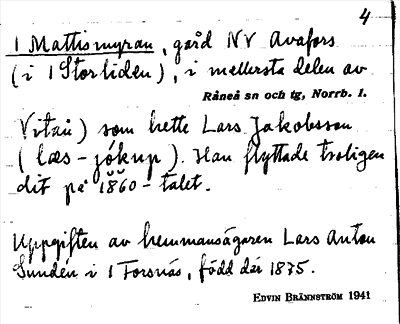 4
1 Mattismyran, gård NV Avafors
(i 1 Storliden), i mellersta delen av
Råneå sn och tg, Norrb. l.
Vitån) som hette Lars Jakobsson
(læs-jókup). Han flyttade troligen
dit på 1860-talet.
Uppgiften av hemmansägaren Lars Anton
Sundén i 1 Forsnäs, född där 1875.
EDVIN BRÄNNSTRÖM 1941